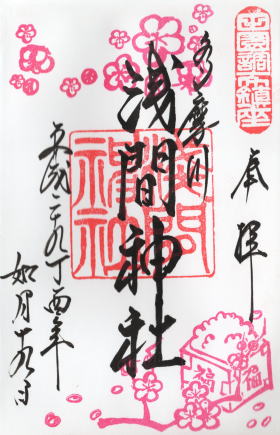 奉拝
多摩川
浅間神社
平成二九丁酉年
如月十九日
福